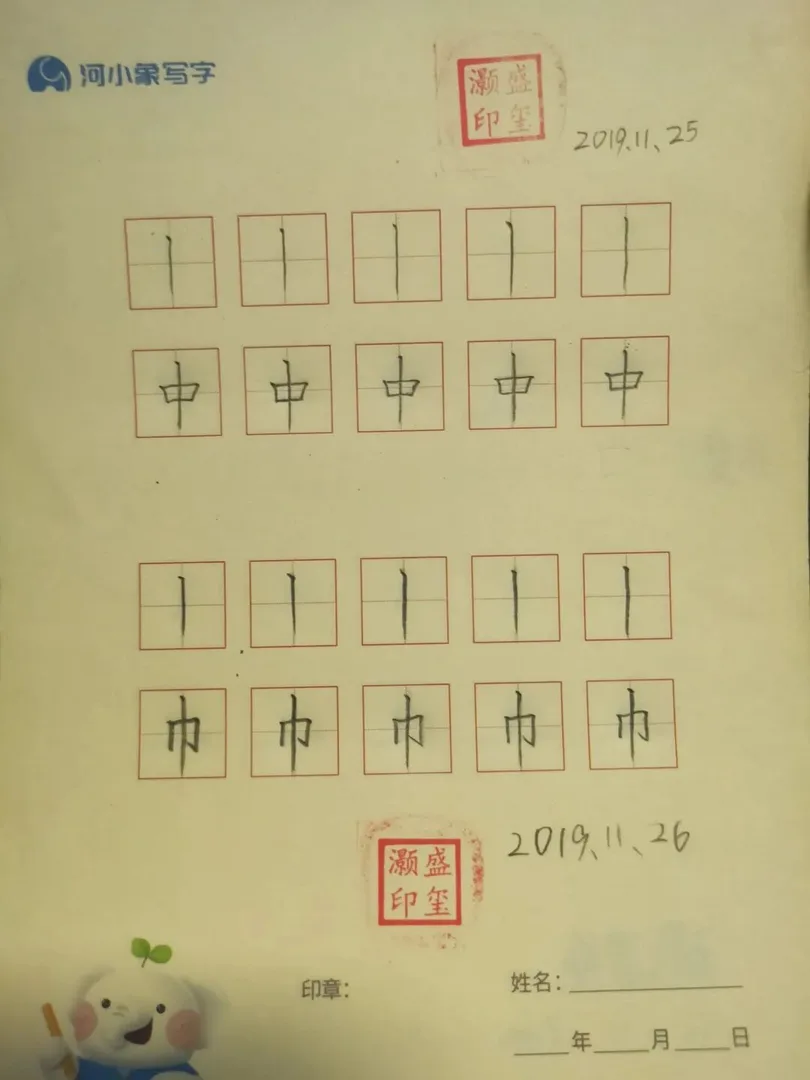 河小象写字
灏盛
印玺
2019.11、25
丨 丨 丨 丨 丨
中 中 中 中 中
丨 丨 丨 丨 丨
巾 巾 巾 巾 巾
灏盛
印玺
2019、11、26
印章:
姓名:
年 月 日